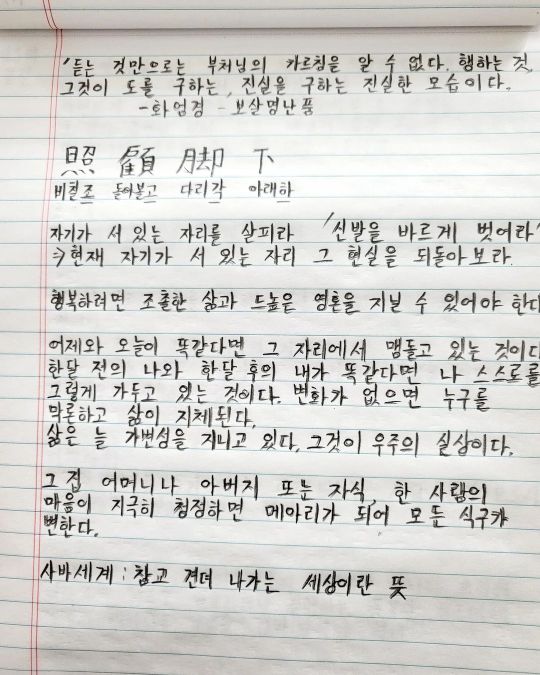 '듣는 것만으로는 부처님의 가르침을 알 수 없다. 행하는 것,
그것이 도를 구하는, 진실을 구하는 진실한 모습이다.
-화엄경 - 보살명난품
照 顧 脚 下
비칠조 돌아볼고 다리각 아래하
자기가 서 있는 자리를 살피라 '신발을 바르게 벗어라'
→현재 자기가 서 있는 자리 그 현실을 되돌아 보라.
행복하려면 조촐한 삶과 드높은 영혼을 지닐 수 있어야 한다
어제와 오늘이 똑같다면 그 자리에서 맴돌고 있는 것이다
한달 전의 나와 한달 후의 내가 똑같다면 나 스스로를
그렇게 가두고 있는 것이다. 변화가 없으면 누구를
막론하고 삶이 지체된다.
삶은 늘 가변성을 지니고 있다. 그것이 우주의 실상이다.
그 집 어머니나 아버지 또는 자식, 한 사람의
마음이 지극히 청정하면 메아리가 되어 모든 식구가
변한다.
사바세계 : 참고 견뎌 나가는 세상이란 뜻